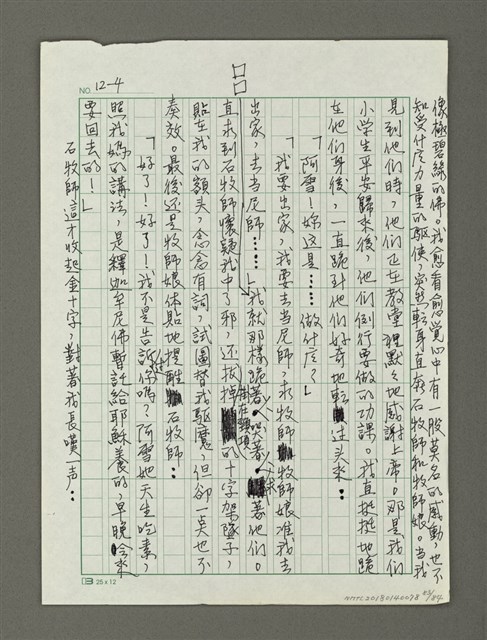 NO. 12-4
像極碧絲的佛。我愈看愈覺心中有一股莫名的感動,也不
知受什麼力量的驅使,忽然轉身直奔石牧師和牧師娘。當我
見到他們時,他們正在教堂裡默々地感謝上帝。那是我們
小学生平安歸來後,他們例行要做的功課。我直挺挺地跪
在他們身後,一直跪到他們好奇地轉过头來。
「阿雪!妳这是……做什麼?」
「我要出家,我要去当尼師,求牧師牧師娘准我去
出家,去当尼師……」我就那樣跪著、哭著、求著他們。
直求到石牧師懷疑我中了邪,还拔掉掛在頸項的十字架墜子,
貼在我的額头,念念有詞,試圖替我驅魔,但卻一点也不
奏效。最後还是牧師娘体貼地提醒石牧師:
「好了!好了!我不是告訴过你嗎?阿雪她天生吃素,
照我媽的講法,是釋迦牟尼佛暫託給耶穌養的,早晚会來
要回去的!」
石牧師這才收起金十字,對著我長嘆一声:
25 x 12
NMTL20180140078